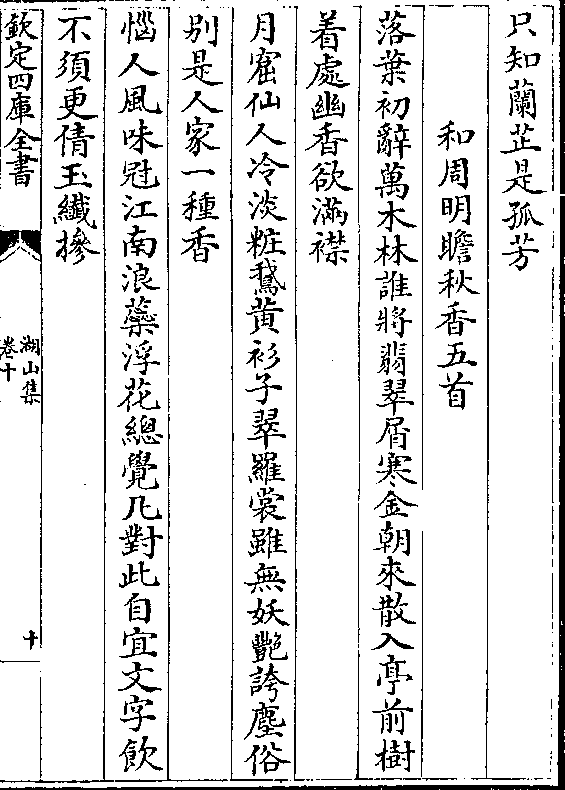 只知蘭芷是孤芳
和周明瞻秋香五首
落葉初辭萬木林誰將翡翠屑寒金朝來散入亭前樹
着處幽香欲滿襟
月窟仙人冷淡粧鵞黃衫子翠羅裳雖無妖艷誇塵俗
别是人家一種香
惱人風味冠江南浪蘂浮花總覺凡對此自宜文字飲
不須更倩玉纖摻
欽定四庫全書
湖山集
卷十
十